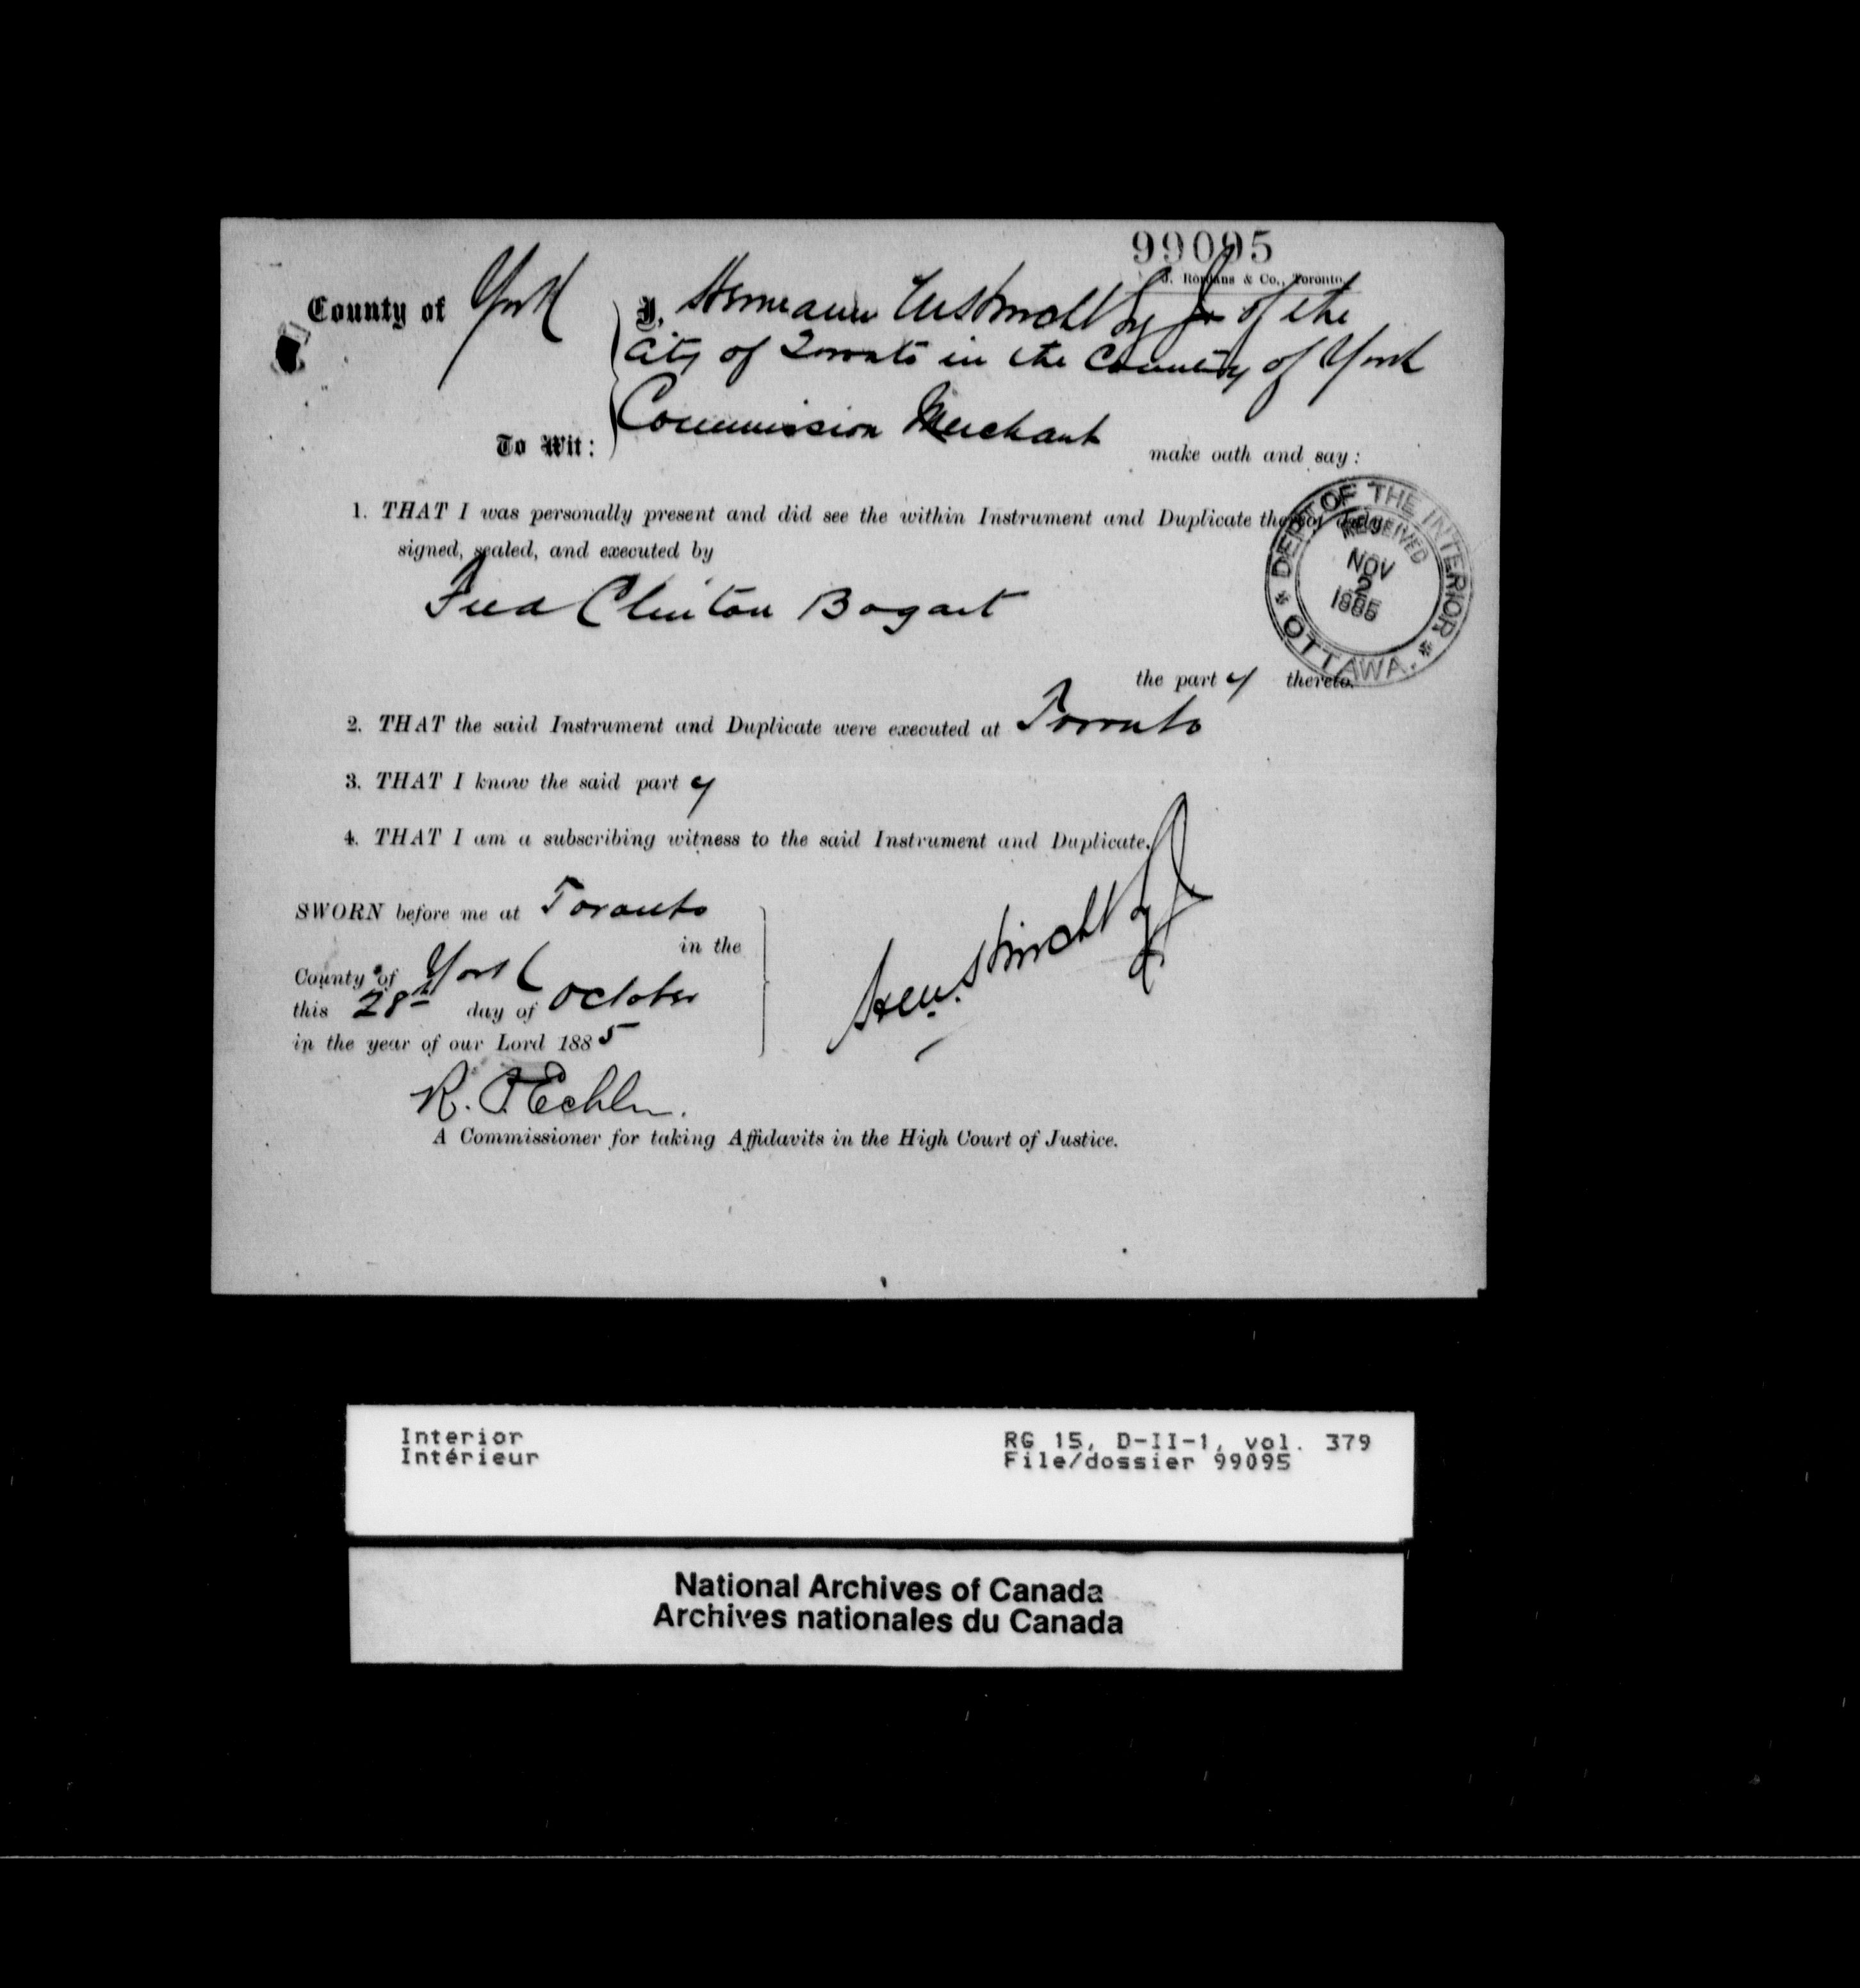 99095
J. Rordans & Co., Toronto
County of York
I, Hermann of the
City of Toronto in the County of York
Commission Merchant
To Wit:
make oath and say:
1. THAT I was personally present and did see the within Instrument and Duplicate thereof duly
signed, sealed, and executed by
Fred Clinton Bogart
DEPT OF THE INTERIOR
RECEIVED
NOV
2
1885
OTTAWA.
the part y thereto.
2. THAT the said Instrument and Duplicate were executed at Toronto
3. THAT I know the said part y
4. THAT I am a subscribing witness to the said Instrument and Duplicate.
SWORN before me at Toronto
in the
County of York
this 28th day of October
in the year of our Lord 1885
R.
A Commissioner for taking Affidavits in the High Court of Justice.
Interior
Intérieur
RG 15, D-II-1, vol. 379
File/dossier 99095
National Archives of Canada
Archives nationales du Canada